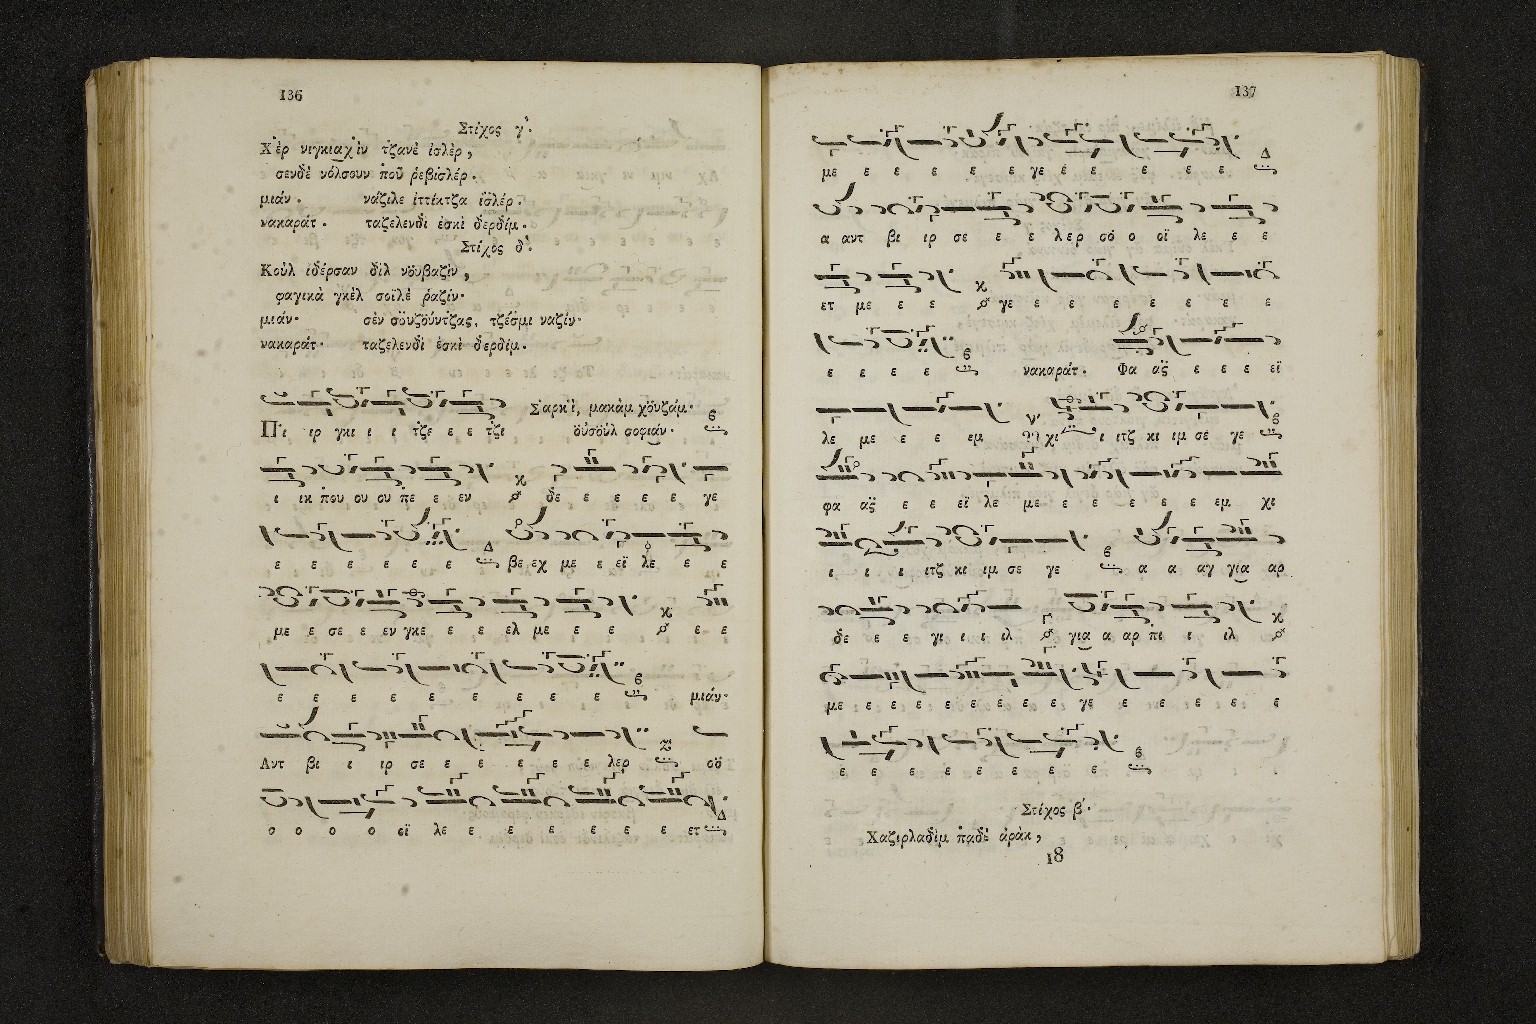 136
Στίχος γ΄.
Χὲρ νιγκιαχὶν τζανὲ ἰσλὲρ,
σενδὲ νόλσουν ποῦ ῥεβισλέρ.
μιάν. νάζιλε ἰττίκτζα ἰσλέρ.
νακαράτ. ταζελενδὶ ἐσκὶ δερδίμ.
Στίχος δ΄.
Κοὺλ ἰδέρσαν δὶλ νὄυβαζὶν,
φαγικὰ γκὲλ σοϊλὲ ῥαζίν.
μιάν. σὲν σὄυζὄύντζας, τζέσμι ναζίν.
νακαράτ. ταζελενδὶ ἐσκὶ δερδίμ.
Σαρκὶ, μακὰμ χὄυζάμ.
Πι ιρ γκι ι ι τζε ε ε τζι ὀυσοὺλ σοφιάν.
ι ικ που ου ου πε ε εν δε ε ε ε ε γε
ε ε ε ε ε ε βε εχ με ε εϊ λε ε ε
με ε σε ε εν γκε ε ε ελ με ε ε ε ε
ε ε ε ε ε ε ε ε ε μιάν.
Αντ βι ι ιρ σε ε ε ε ε ε λερ σὄ
ο ο ο ο οϊ λε ε ε ε ε ε ε ετ
137
με ε ε ε ε ε γε ε ε ε ε ε
α αντ βι ιρ σε ε ε λερ σὄ ο οϊ λε ε ε
ετ με ε ε γε ε ε ε ε ε ε ε
ε ε ε ε νακαράτ. Φα αξ ε ε ε εϊ
λε με ε ε εμ χι ι ιτζ κι ιμ σε γε
φα αξ ε ε εϊ λε με ε ε ε ε ε εμ χι
ι ι ι ιτζ κι ιμ σε γε α α αγ για αρ
δε ε ε γι ι ι ιλ για α αρ πι ι ιλ
με ε ε ε ε ε ε ε ε γε ε ε ε ε ε
ε ε ε ε ε ε ε ε
Στίχος β΄.
Χαζιρλαδὶμ παδὲ ἀρὰκ,
18